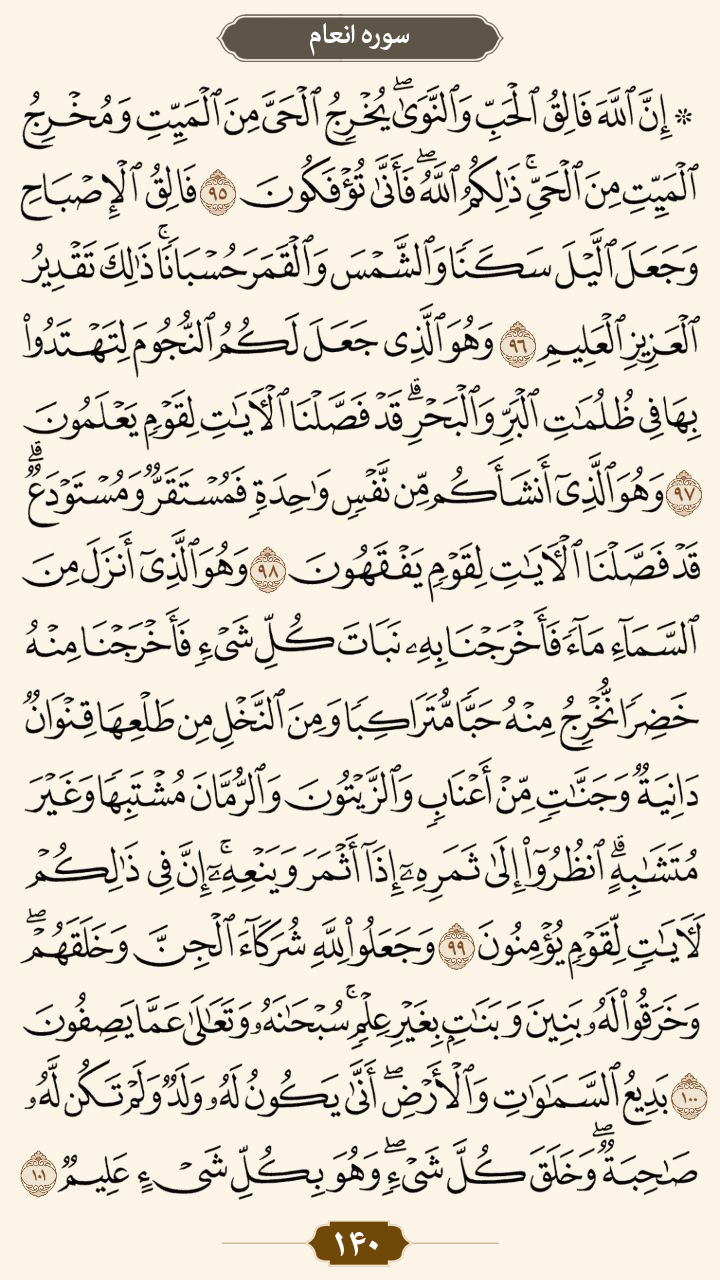 سوره انعام
* إِنَّ ٱللَّهَ فَالِقُ ٱلْحَبِّ وَٱلنَّوَىٰۖ يُخْرِجُ ٱلْحَىَّ مِنَ ٱلْمَيِّتِ وَمُخْرِجُ
ٱلْمَيِّتِ مِنَ ٱلْحَىِّۚ ذَٰلِكُمُ ٱللَّهُۖ فَأَنَّىٰ تُؤْفَكُونَ ٩٥ فَالِقُ ٱلْإِصْبَاحِ
وَجَعَلَ ٱلَّيْلَ سَكَنًا وَٱلشَّمْسَ وَٱلْقَمَرَ حُسْبَانًاۚ ذَٰلِكَ تَقْدِيرُ
ٱلْعَزِيزِ ٱلْعَلِيمِ ٩٦ وَهُوَ ٱلَّذِى جَعَلَ لَكُمُ ٱلنُّجُومَ لِتَهْتَدُوا۟
بِهَا فِى ظُلُمَٰتِ ٱلْبَرِّ وَٱلْبَحْرِۗ قَدْ فَصَّلْنَا ٱلْءَايَٰتِ لِقَوْمٍ يَعْلَمُونَ
٩٧ وَهُوَ ٱلَّذِىٓ أَنشَأَكُم مِّن نَّفْسٍ وَٰحِدَةٍ فَمُسْتَقَرٌّ وَمُسْتَوْدَعٌۗ
قَدْ فَصَّلْنَا ٱلْءَايَٰتِ لِقَوْمٍ يَفْقَهُونَ ٩٨ وَهُوَ ٱلَّذِىٓ أَنزَلَ مِنَ
ٱلسَّمَآءِ مَآءً فَأَخْرَجْنَا بِهِۦ نَبَاتَ كُلِّ شَىْءٍ فَأَخْرَجْنَا مِنْهُ
خَضِرًا نُّخْرِجُ مِنْهُ حَبًّا مُّتَرَاكِبًا وَمِنَ ٱلنَّخْلِ مِن طَلْعِهَا قِنْوَانٌ
دَانِيَةٌ وَجَنَّٰتٍ مِّنْ أَعْنَابٍ وَٱلزَّيْتُونَ وَٱلرُّمَّانَ مُشْتَبِهًا وَغَيْرَ
مُتَشَٰبِهٍۗ ٱنظُرُوٓا۟ إِلَىٰ ثَمَرِهِۦٓ إِذَآ أَثْمَرَ وَيَنْعِهِۦٓۚ إِنَّ فِى ذَٰلِكُمْ
لَءَايَٰتٍ لِّقَوْمٍ يُؤْمِنُونَ ٩٩ وَجَعَلُوا۟ لِلَّهِ شُرَكَآءَ ٱلْجِنَّ وَخَلَقَهُمْۖ
وَخَرَقُوا۟ لَهُۥ بَنِينَ وَبَنَٰتٍۭ بِغَيْرِ عِلْمٍۚ سُبْحَٰنَهُۥ وَتَعَٰلَىٰ عَمَّا يَصِفُونَ
١٠٠ بَدِيعُ ٱلسَّمَٰوَٰتِ وَٱلْأَرْضِۖ أَنَّىٰ يَكُونُ لَهُۥ وَلَدٌ وَلَمْ تَكُن لَّهُۥ
صَٰحِبَةٌۖ وَخَلَقَ كُلَّ شَىْءٍۖ وَهُوَ بِكُلِّ شَىْءٍ عَلِيمٌ ١٠١
۱۴۰